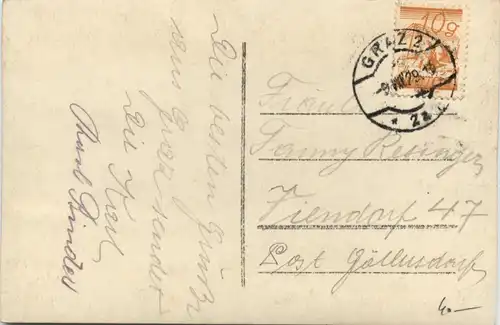 Die besten Grüße
aus Graz sendet
Die Karl
Karl Binder
10g
GRAZ 2
9.VIII.29
* 2a
Fräulein
Fanny Resinger
Viendorf 47
Post Göllersdorf
40—